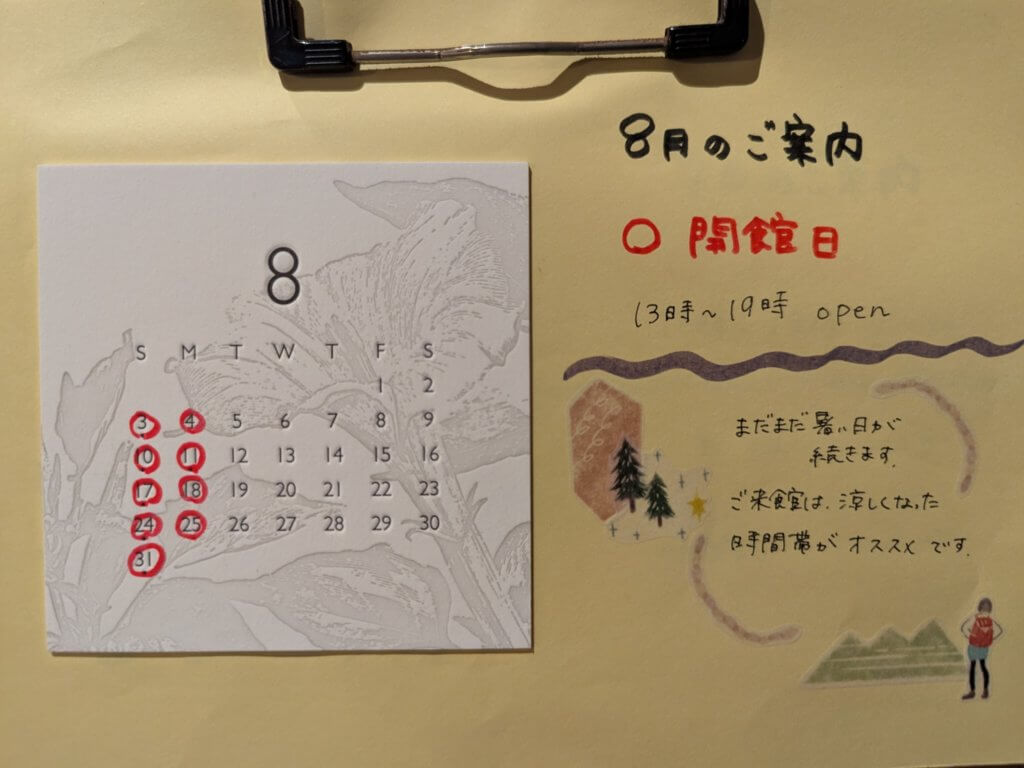 8
S M T W T F S
1 2
3 4 5 6 7 8 9
10 11 12 13 14 15 16
17 18 19 20 21 22 23
24 25 26 27 28 29 30
31
8月のご案内
○ 開館日
13時~19時 open
まだまだ暑い日が
続きます.
ご来館は、涼しくなった
時間帯が オススメ です.